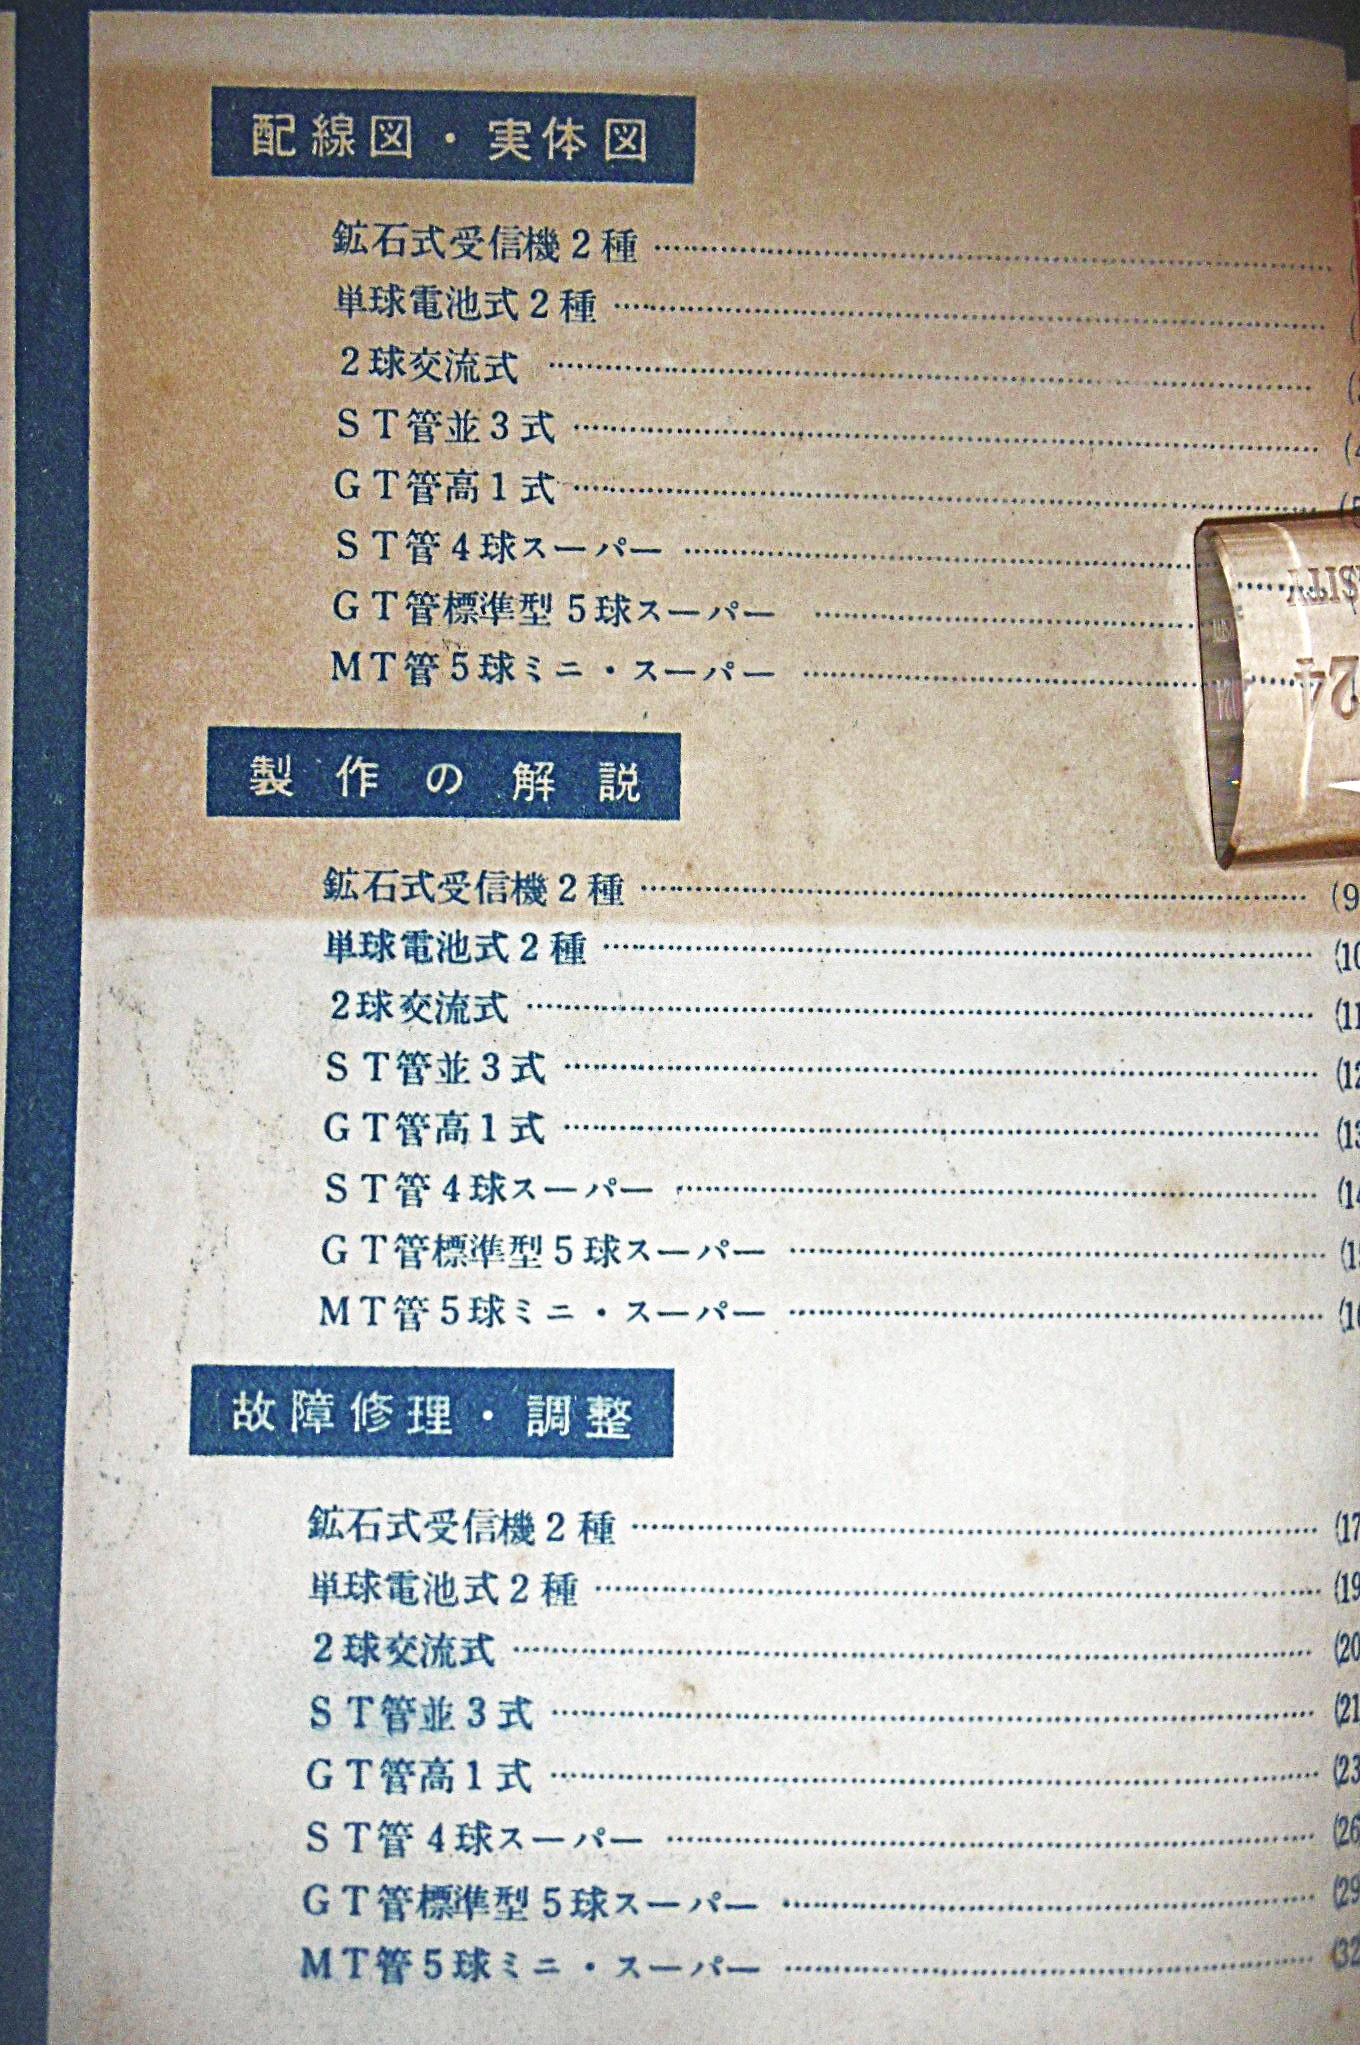 配線図・実体図
鉱石式受信機2種 ……………………
単球電池式2種 ……………………
2球交流式 ……………………
ST管並3式 …………………… (4
GT管高1式 …………………… (5
ST管4球スーパー ……………………
GT管標準型5球スーパー ……………………
MT管5球ミニ・スーパー ……………………
製作の解説
鉱石式受信機2種 …………………… (9
単球電池式2種 …………………… (10
2球交流式 …………………… (11
ST管並3式 …………………… (12
GT管高1式 …………………… (13
ST管4球スーパー …………………… (14
GT管標準型5球スーパー …………………… (15
MT管5球ミニ・スーパー …………………… (16
故障修理・調整
鉱石式受信機2種 …………………… (17
単球電池式2種 …………………… (19
2球交流式 …………………… (20
ST管並3式 …………………… (21
GT管高1式 …………………… (23
ST管4球スーパー …………………… (26
GT管標準型5球スーパー …………………… (29
MT管5球ミニ・スーパー …………………… (32